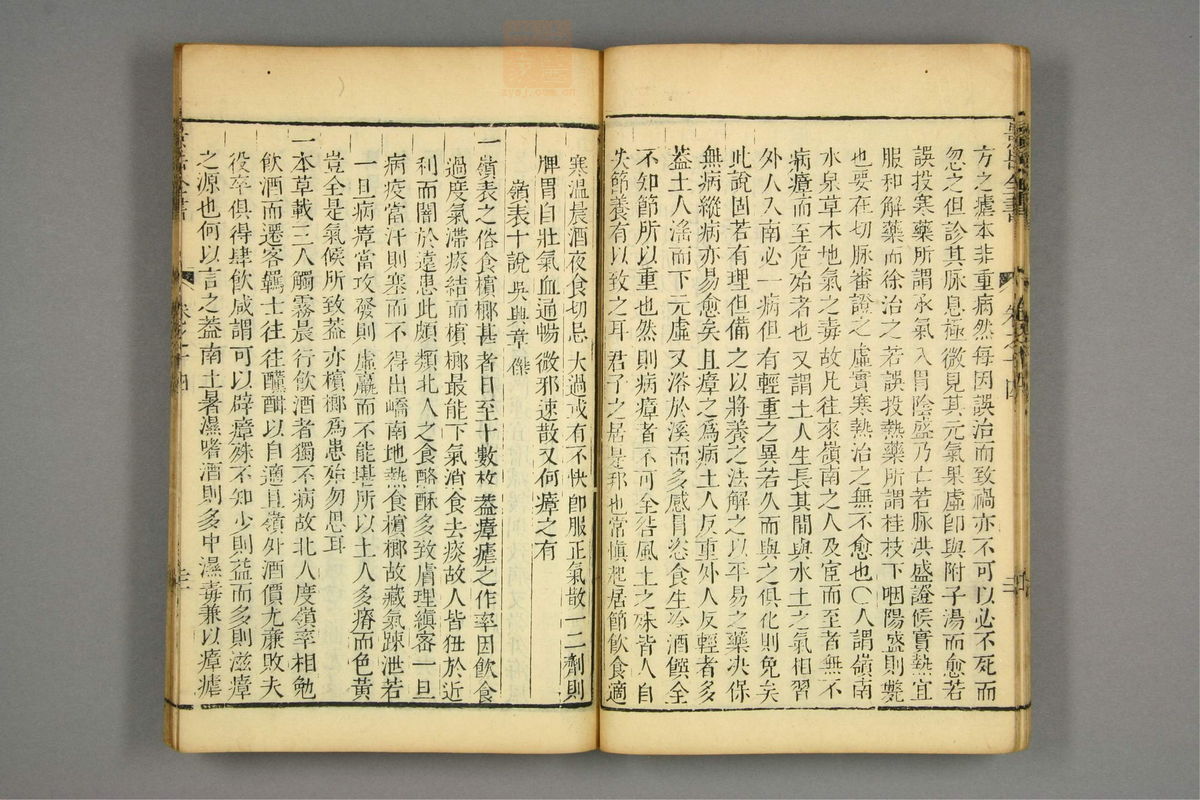 方之瘧本非重病然每因誤治而致禍亦不可以必不死而
忽之但診其脉息極微見其元氣果虛卽與附子湯而愈若
誤投寒藥所謂承氣入胃陰盛乃亡若脉洪盛證候實熱宜
服和解藥而徐治之若誤投熱藥所謂桂枝下咽陽盛則斃
也要在切脉審證之虛實寒熱治之無不愈也〇人謂嶺南
水泉草木地氣之毒故凡往來嶺南之人及宦而至者無不
病瘴而至危殆者也又謂土人生長其間與水土之氣相習
外人入南必一病但有輕重之異若久而與之俱化則免矣
此說固若有理但備之以將養之法解之以平易之藥决保
無病縱病亦易愈矣且瘴之爲病土人反重外人反輕者多
蓋土人淫而下元虛又浴於溪而多感冒恣食生冷酒饌全
不知節所以重也然則病瘴者不可全咎風土之殊皆人自
失節養有以致之耳君子之居是邦也常愼起居節飲食適
寒温晨酒夜食切忌大過或有不快卽服正氣散一二劑則
脾胃自壯氣血通暢微邪速散又何瘴之有
嶺表十說 吳興章 傑
一嶺表之俗食檳榔甚者日至十數枚蓋瘴瘧之作率因飲食
過度氣滯痰結而檳榔最能下氣消食去痰故人皆狃於近
利而闇於遠患此頗類北人之食酪酥多致膚理縝密一旦
病疫當汗則塞而不得出嶠南地熱食檳榔故藏氣踈泄若
一旦病瘴當攻發則虛羸而不能堪所以土人多瘠而色黃
豈全是氣候所致蓋亦檳榔爲患殆勿思耳
一本草載三人觸霧晨行飲酒者獨不病故北人度嶺率相勉
飲酒而遷客羈士往往醺酣以自適且嶺外酒價尤亷敗夫
役卒俱得肆飲咸謂可以辟瘴殊不知少則益而多則滋瘴
之源也何以言之蓋南土暑濕嗜酒則多中濕毒兼以瘴瘧
卷之十四
三